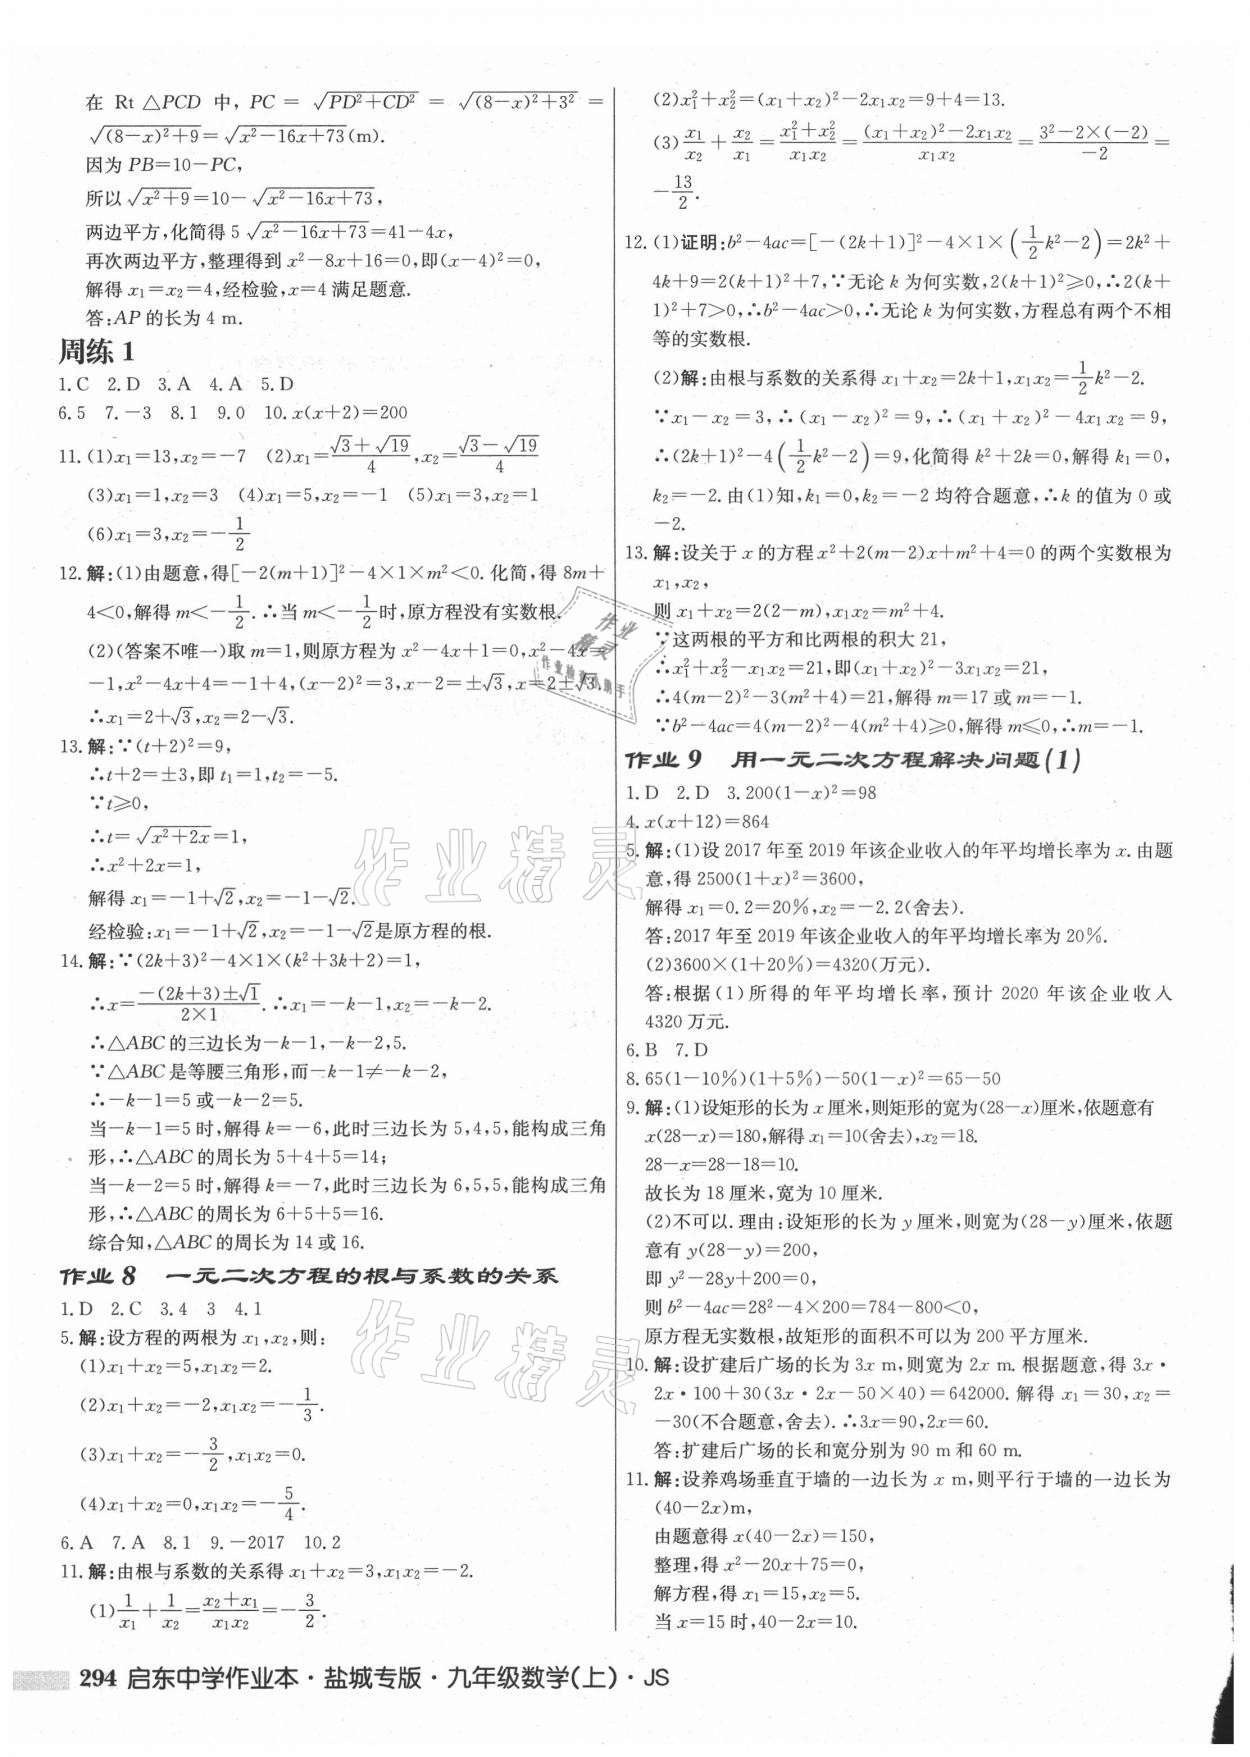 在 Rt △PCD 中, PC = √(PD²+CD²) = √((8-x)²+3²) =
√((8-x)²+9)=√(x²-16x+73)(m).
因为 PB=10-PC,
所以√(x²+9)=10-√(x²-16x+73),
两边平方,化简得 5√(x²-16x+73)=41-4x,
再次两边平方,整理得到 x²-8x+16=0,即(x-4)²=0,
解得 x₁=x₂=4,经检验,x=4 满足题意.
答:AP 的长为 4 m.
周练 1
1.C 2.D 3.A 4.A 5.D
6.5 7.-3 8.1 9.0 10.x(x+2)=200
11.(1)x₁=13,x₂=-7 (2)x₁=(√3+√19)/4,x₂=(√3-√19)/4
(3)x₁=1,x₂=3 (4)x₁=5,x₂=-1 (5)x₁=3,x₂=1
(6)x₁=3,x₂=-1/2
12.解:(1)由题意,得[-2(m+1)]²-4×1×m²<0.化简,得 8m+
4<0,解得 m<-1/2.∴当 m<-1/2时,原方程没有实数根.
(2)(答案不唯一)取 m=1,则原方程为 x²-4x+1=0,x²-4x=
-1,x²-4x+4=-1+4,(x-2)²=3,x-2=±√3,x=2±√3.
∴x₁=2+√3,x₂=2-√3.
13.解:∵(t+2)²=9,
∴t+2=±3,即 t₁=1,t₂=-5.
∵t≥0,
∴t=√(x²+2x)=1,
∴x²+2x=1,
解得 x₁=-1+√2,x₂=-1-√2.
经检验:x₁=-1+√2,x₂=-1-√2是原方程的根.
14.解:∵(2k+3)²-4×1×(k²+3k+2)=1,
∴x=(-(2k+3)±√1)/(2×1).∴x₁=-k-1,x₂=-k-2.
∴△ABC 的三边长为-k-1,-k-2,5.
∵△ABC 是等腰三角形,而-k-1≠-k-2,
∴-k-1=5 或-k-2=5.
当-k-1=5 时,解得 k=-6,此时三边长为 5,4,5,能构成三角
形,∴△ABC 的周长为 5+4+5=14;
当-k-2=5 时,解得 k=-7,此时三边长为 6,5,5,能构成三角
形,∴△ABC 的周长为 6+5+5=16.
综合知,△ABC 的周长为 14 或 16.
作业 8 一元二次方程的根与系数的关系
1.D 2.C 3.4 3 4.1
5.解:设方程的两根为 x₁,x₂,则:
(1)x₁+x₂=5,x₁x₂=2.
(2)x₁+x₂=-2,x₁x₂=-1/3.
(3)x₁+x₂=-3/2,x₁x₂=0.
(4)x₁+x₂=0,x₁x₂=-5/4.
6.A 7.A 8.1 9.-2017 10.2
11.解:由根与系数的关系得 x₁+x₂=3,x₁x₂=-2.
(1)1/x₁+1/x₂=(x₂+x₁)/(x₁x₂)=-3/2.
(2)x₁²+x₂²=(x₁+x₂)²-2x₁x₂=9+4=13.
(3)x₁/x₂+x₂/x₁=(x₁²+x₂²)/(x₁x₂)=((x₁+x₂)²-2x₁x₂)/(x₁x₂)=(3²-2×(-2))/(-2)=
-13/2.
12.(1)证明:b²-4ac=[-(2k+1)]²-4×1×(1/2k²-2)=2k²+
4k+9=2(k+1)²+7,∵无论 k 为何实数,2(k+1)²≥0,∴2(k+
1)²+7>0,∴b²-4ac>0,∴无论 k 为何实数,方程总有两个不相
等的实数根.
(2)解:由根与系数的关系得 x₁+x₂=2k+1,x₁x₂=1/2k²-2.
∵x₁-x₂=3,∴(x₁-x₂)²=9,∴(x₁+x₂)²-4x₁x₂=9,
∴(2k+1)²-4(1/2k²-2)=9,化简得 k²+2k=0,解得 k₁=0,
k₂=-2.由(1)知,k₁=0,k₂=-2 均符合题意,∴k 的值为 0 或
-2.
13.解:设关于 x 的方程 x²+2(m-2)x+m²+4=0 的两个实数根为
x₁,x₂,
则 x₁+x₂=2(2-m),x₁x₂=m²+4.
∵这两根的平方和比两根的积大 21,
∴x₁²+x₂²-x₁x₂=21,即(x₁+x₂)²-3x₁x₂=21,
∴4(m-2)²-3(m²+4)=21,解得 m=17 或 m=-1.
∵b²-4ac=4(m-2)²-4(m²+4)≥0,解得 m≤0,∴m=-1.
作业 9 用一元二次方程解决问题(1)
1.D 2.D 3.200(1-x)²=98
4.x(x+12)=864
5.解:(1)设 2017 年至 2019 年该企业收入的年平均增长率为 x.由题
意,得 2500(1+x)²=3600,
解得 x₁=0.2=20%,x₂=-2.2(舍去).
答:2017 年至 2019 年该企业收入的年平均增长率为 20%.
(2)3600×(1+20%)=4320(万元).
答:根据(1)所得的年平均增长率,预计 2020 年该企业收入
4320 万元.
6.B 7.D
8.65(1-10%)(1+5%)-50(1-x)²=65-50
9.解:(1)设矩形的长为 x 厘米,则矩形的宽为(28-x)厘米,依题意有
x(28-x)=180,解得 x₁=10(舍去),x₂=18.
28-x=28-18=10.
故长为 18 厘米,宽为 10 厘米.
(2)不可以.理由:设矩形的长为 y 厘米,则宽为(28-y)厘米,依题
意有 y(28-y)=200,
即 y²-28y+200=0,
则 b²-4ac=28²-4×200=784-800<0,
原方程无实数根,故矩形的面积不可以为 200 平方厘米.
10.解:设扩建后广场的长为 3x m,则宽为 2x m.根据题意,得 3x·
2x·100+30(3x·2x-50×40)=642000.解得 x₁=30,x₂=
-30(不合题意,舍去).∴3x=90,2x=60.
答:扩建后广场的长和宽分别为 90 m 和 60 m.
11.解:设养鸡场垂直于墙的一边长为 x m,则平行于墙的一边长为
(40-2x)m,
由题意得 x(40-2x)=150,
整理,得 x²-20x+75=0,
解方程,得 x₁=15,x₂=5.
当 x=15 时,40-2x=10.
294 启东中学作业本·盐城专版·九年级数学(上)·JS
作业精灵
作业精灵
作业精灵